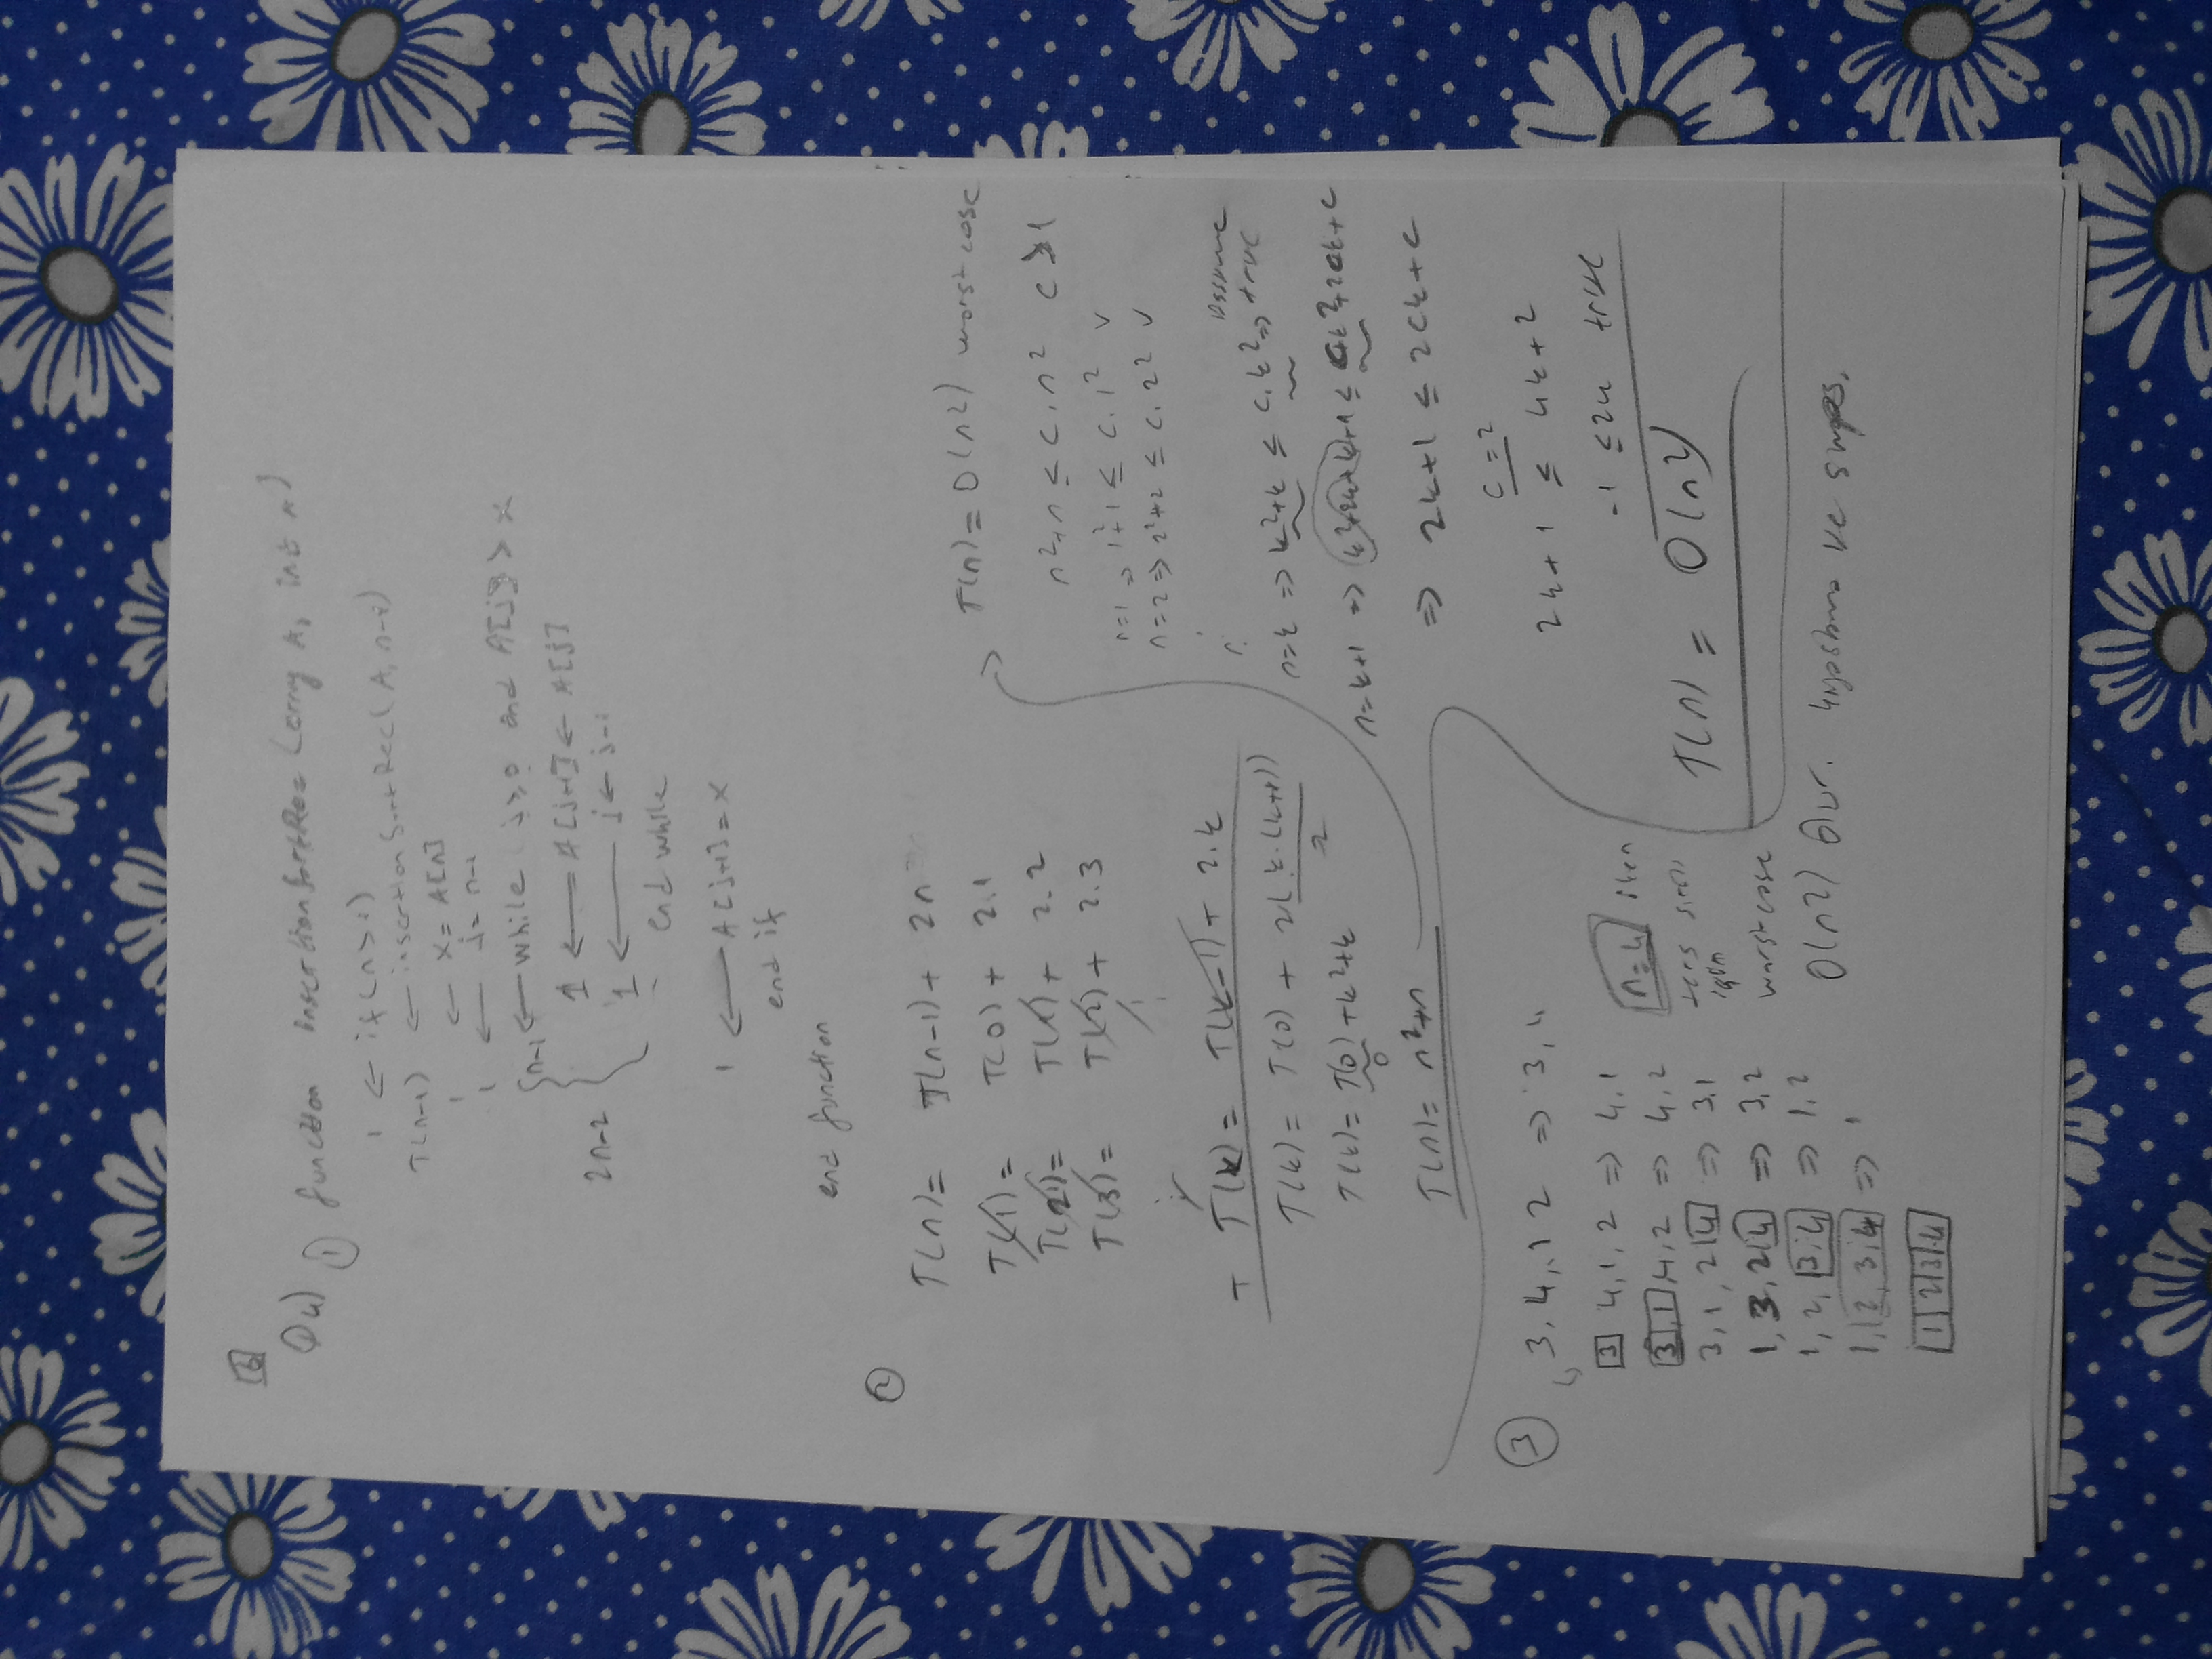 6
Q4) ① function insertionSortRec (array A, int n)
1 ← if(n>1)
T(n-1) ← insertionSortRec(A, n-1)
1 ← x= A[n]
1 ← j= n-1
n-1 ← while j≥0 and A[j] > x
1 ← A[j+1] ← A[j]
2n-2
1 ← j ← j-1
end while
1 ← A[j+1] = x
end if
end function
②
T(n)= T(n-1)+ 2n
T(1)= T(0)+ 2.1
T(2)= T(1)+ 2.2
T(3)= T(2)+ 2.3
+ T(k)= T(k-1)+ 2.k
T(k)= T(0) + 2(k.(k+1))
2
T(k)= T(0) +k²+k
0
T(n)= n²+n
T(n)= O(n2) worst case
n²+n ≤ c.n² c>1
n=1 ⇒ 1²+1 ≤ c.1² ✓
n=2 ⇒ 2²+2 ≤ c.2² ✓
assume
n=k ⇒ k²+k ≤ c.k² ⇒ true
n=k+1 ⇒ k²+2k+k+1 ≤ ck²+2ck+c
⇒ 2k+1 ≤ 2ck+c
c=2
2k+1 ≤ 4k+2
-1 ≤ 2k true
T(n) = O(n2)
③ 3,4,1 2 ⇒ 3,4
3 4,1,2 ⇒ 4,1
3,1,4,2 ⇒ 4,2
3,1,2 4 ⇒ 3,1
1,3,2 4 ⇒ 3,2
1,2,3,4 ⇒ 1,2
1,2,3,4 ⇒ 1
1 2 3 4
n=4 iken
ters sıralı
için
worst case
O(n2) dur. ve swaps.